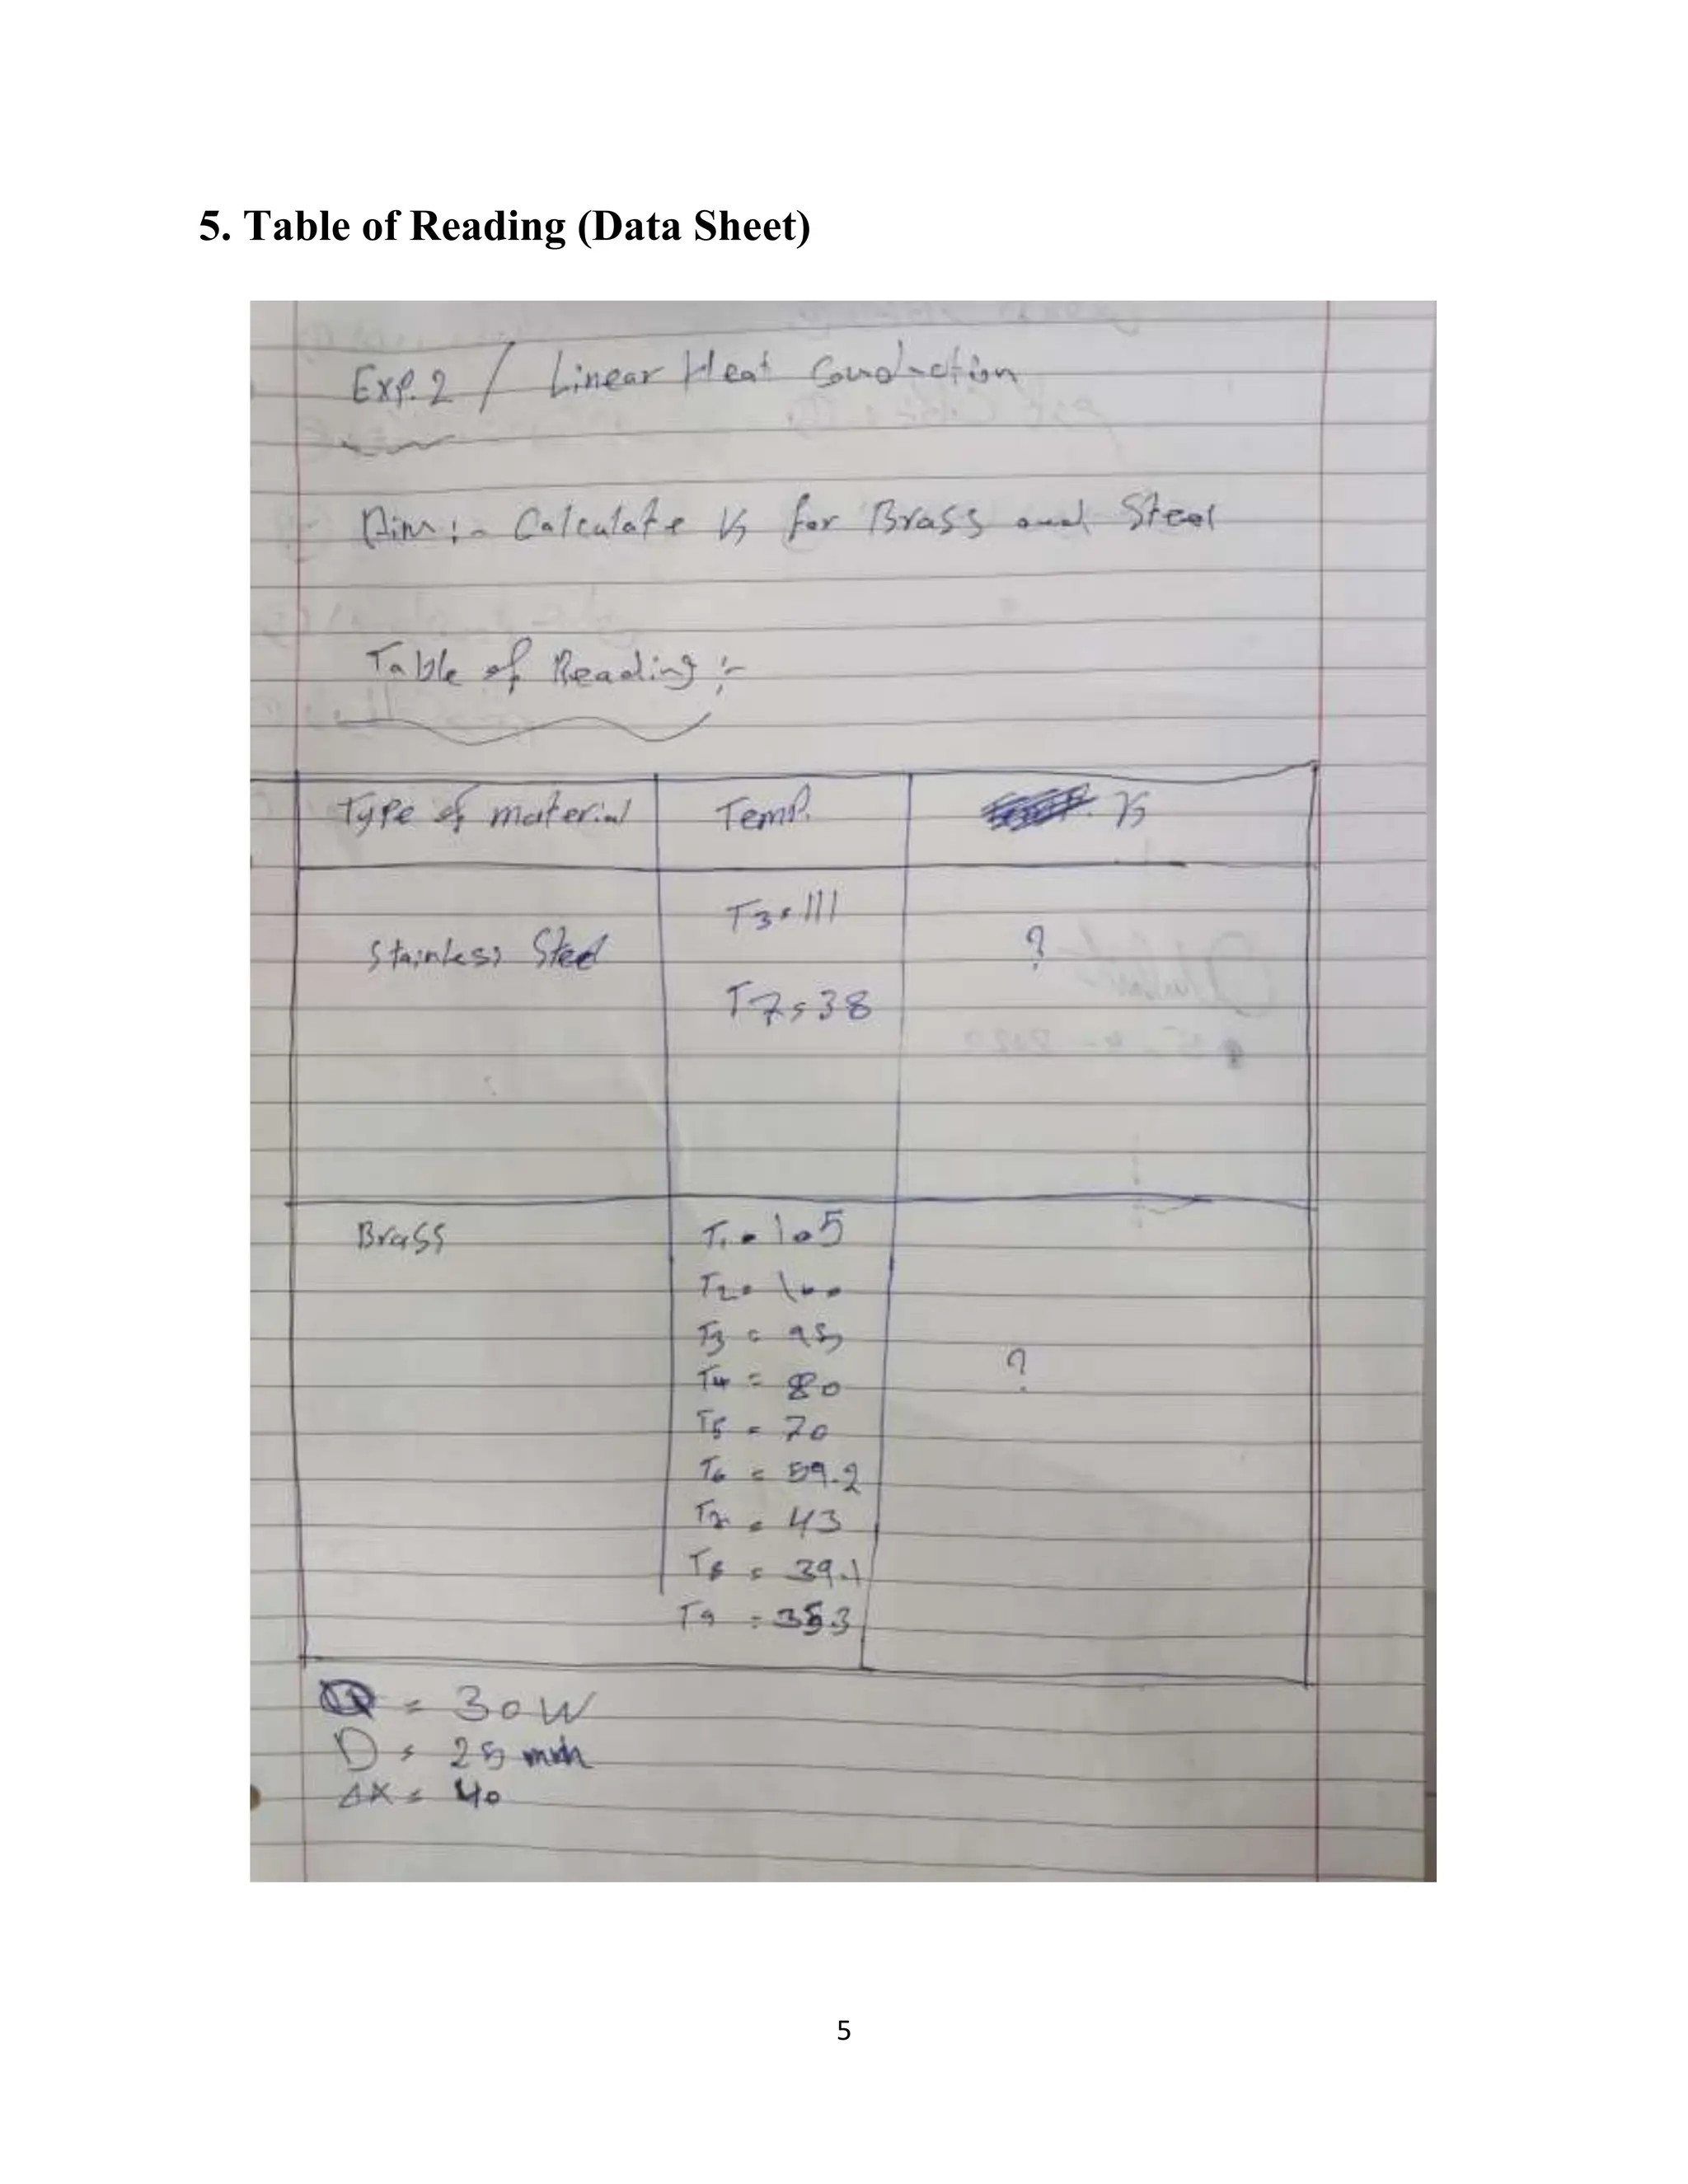 5. Table of Reading (Data Sheet)
Exp.2 / Linear Heat Conduction
Aim :- Calculate K for Brass and Steel
Table of Reading :-
Type of material Temp. K
Stainless Steel T3 = 111 ?
T7 = 38
Brass T1 = 105
T2 = 100
T3 = 95
T4 = 80 ?
T5 = 70
T6 = 59.2
T7 = 43
T8 = 39.1
T9 =
= 30 W
D = 25 mm
ΔX = 40
5